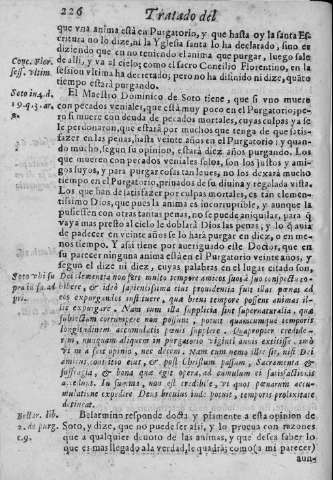 226 Tratado del
que vna anima está en Purgatorio, y que hasta oy la santa Es
critura no lo dize, ni la Yglesia santa lo ha declarado, sino en
diziendo que en no teniendo el anima que purgar, luego sale
Conc. Flor. de alli, y va al cielo; como el sacro Concilio Florentino, en la
sess. vltim. session vltima ha decretado; pero no ha difinido ni dize, quãto
tiempo estará purgando.
Soto in 4. d. El Maestro Dominico de Soto tiene, que si vno muere
19. q. 3. ar. con pecados veniales, que està muy poco en el Purgatorio; pe-
ro si muere con deuda de pecados mortales, cuyas culpas ya se
le perdonaron, que estará por muchos que tenga de que satis-
fazer en las penas, hasta veinte años en el Purgatorio: y quan-
do mucho, segun su opinion, estará diez años purgando. Los
que mueren con pecados veniales solos, son los justos y ami-
gos suyos, y para purgar cosas tan leues, no los dexará mucho
tiempo en el Purgatorio, priuados de su diuina y regalada vista.
Los que han de satisfazer por culpas mortales, es tan clemen-
tissimo Dios, que pues la anima es incorruptible, y aunque la
pusiessen con otras tantas penas, no se puede aniquilar, para q̃
vaya mas presto al cielo le doblará Dios las penas, y lo q̃ auia
de padecer en veinte años se lo hará purgar en diez, o en me-
nos tiempo. Y assi tiene por aueriguado este Doctor, que en
su parecer ninguna anima está en el Purgatorio veinte años, y
segun el dize ni diez, cuyas palabras en el lugar citado son,
Soto vbi su Dei clementia non fert multo tempore amicos suos à suo conspectu co-
pra hibere, & idcò sapientissima eius prouidentia sunt illas pœnas ad
eos expurgandos instituere, qua breui tempore possent animas il-
las expurgare. Nam cum illa supplicia sint supernaturalia, quæ
subiectum corrumpere non possunt, potuit quantumcumque temporis
longitudinem accumulatis pœnis supplere. Quapropter credide-
rim, nunquam aliquem in purgatorio viginti annis extitisse. imò
vt mea fert opinio, nec decem. Nam cum nemo illic sit, nisi Dei
amicus, contritio eius, & post Christum passum, Sacramenta &
suffragia, & bona quæ egit opera, ad cumulum ei satisfactionis
accedunt. In summa, non est credibile, vt quos pœnarum accu-
mulatione expedire Deus breuius inde potuit, temporis prolixitate
detineat.
Bellar. lib. Belarmino responde docta y piamente a esta opinion de
2. de purg. Soto, y dize, que no puede ser assi, y lo prueua con razones
c. 9. que a qualquier deuoto de las animas, y que desea saber lo
que es mas llegado a la verdad, le quadrás como (a mi parecer)
aun-